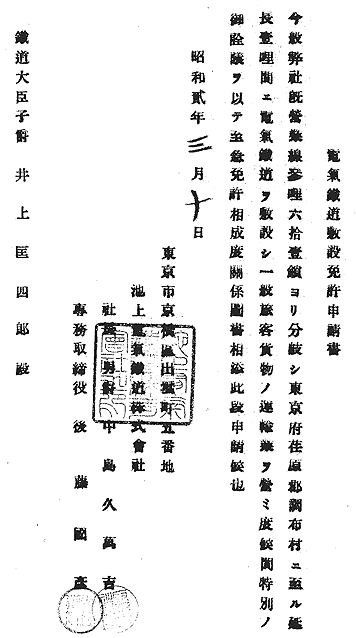 電氣鐵道敷設免許申請書
今般弊社既營業線參哩六拾壹鎖ヨリ分岐シ東京府荏原郡調布村ニ至ル延
長壹哩間ニ電氣鐵道ヲ敷設シ一般旅客貨物ノ運輸業ヲ營ミ度候間特別ノ
御詮議ヲ以テ至急免許相成度關係圖書相添此段申請候也
昭和貳年三月十日
東京市京橋區出雲町五番地
池上電氣鐵道株式會社
社長男爵 中島久萬吉
專務取締役 後藤國彦
鐵道大臣子爵 井上匡四郎 殿